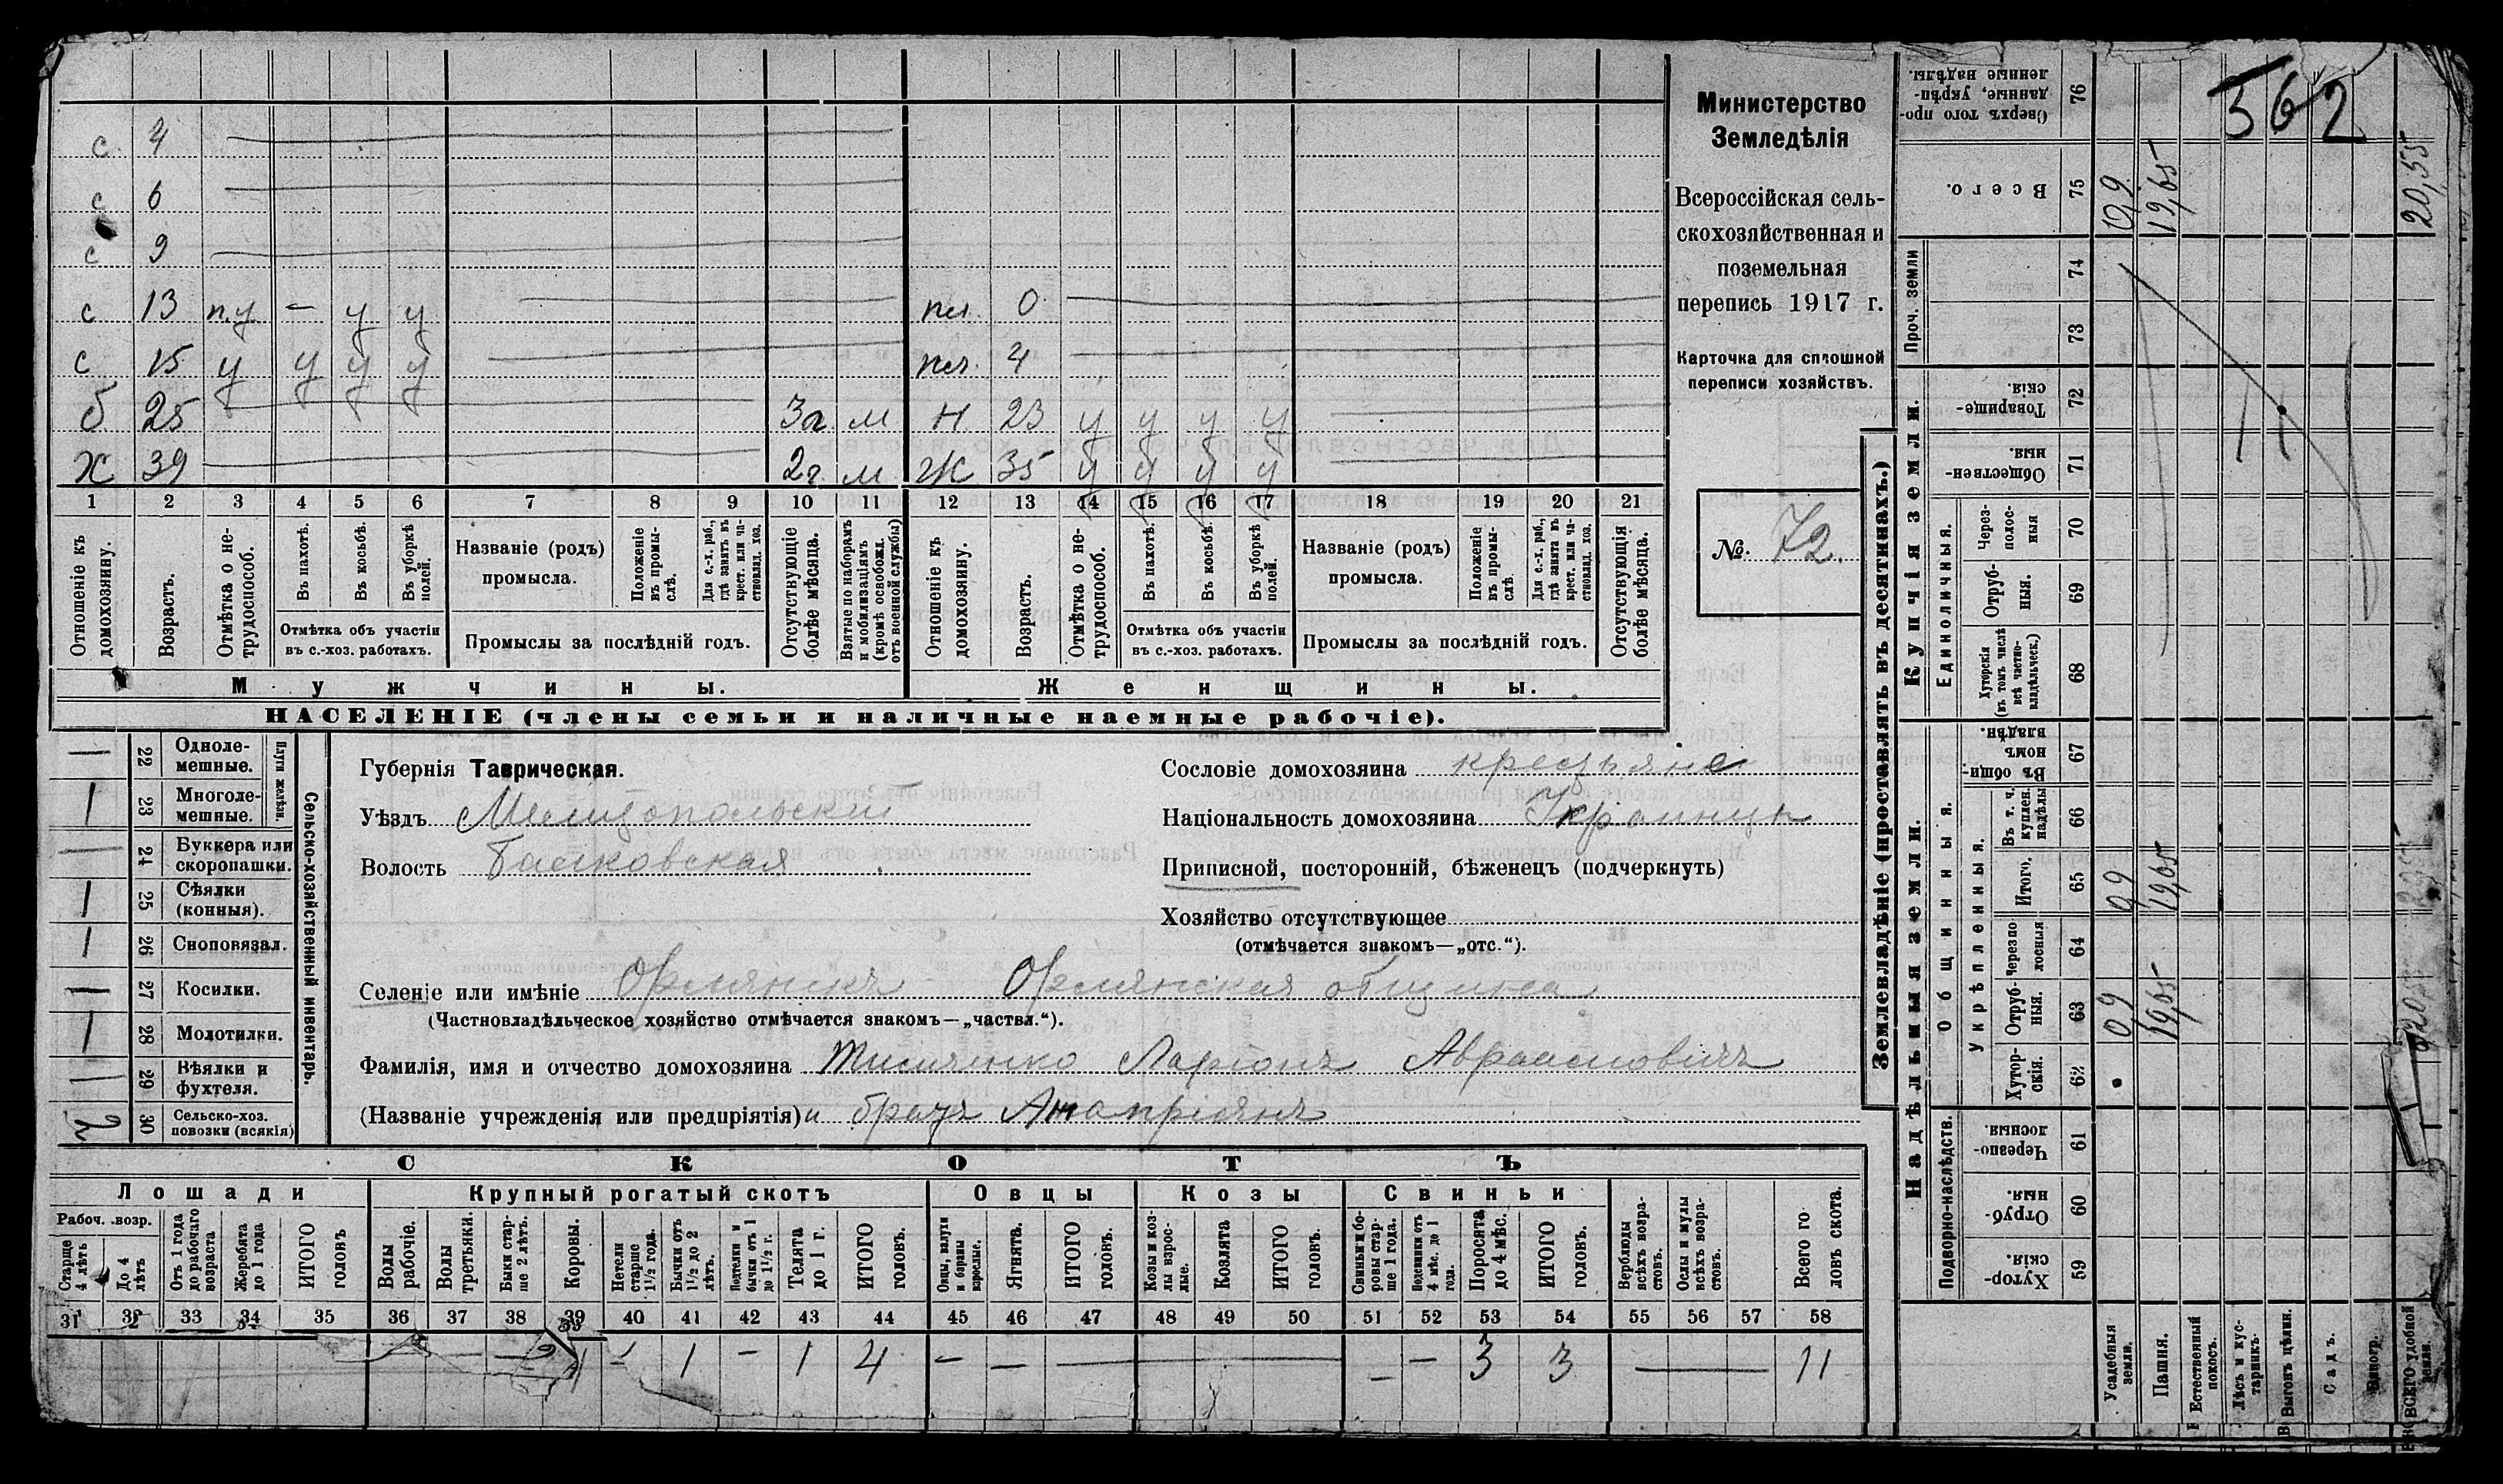 562
с 4
с 6
с 9
с 13 п.у – у у пл. 0
с 15 у у у у пл. 4
б 25 3г. м Н 23 у у у у
Х 39 2г. м Ж 35 у у у у
1 2 3 4 5 6 7 8 9 10 11 12 13 14 15 16 17 18 19 20 21
Отношеніе къ домохозяину.
Возрастъ.
Отмѣтка о нетрудоспособ.
Въ пахотѣ.
Въ косьбѣ.
Въ уборкѣ полей.
Отмѣтка объ участіи въ с.-хоз. работахъ.
Названіе (родъ) промысла.
Положеніе въ промыслѣ.
Для с.-х. раб., гдѣ занятъ въ крест. или частновлад. хоз.
Промыслы за послѣдній годъ.
Отсутствующіе болѣе мѣсяца.
Взятые по наборамъ и мобилизаціямъ (кромѣ освобожд. отъ военной службы)
Отношеніе къ домохозяину.
Возрастъ.
Отмѣтка о нетрудоспособ.
Въ пахотѣ.
Въ косьбѣ.
Въ уборкѣ полей.
Отмѣтка объ участіи въ с.-хоз. работахъ.
Названіе (родъ) промысла.
Положеніе въ промыслѣ.
Для с.-х. раб., гдѣ занята въ крест. или частновлад. хоз.
Промыслы за послѣдній годъ.
Отсутствующія болѣе мѣсяца.
Мужчины. Женщины.
НАСЕЛЕНІЕ (члены семьи и наличные наемные рабочіе).
Министерство
Земледѣлія
Всероссійская сель-
скохозяйственная и
поземельная
перепись 1917 г.
Карточка для сплошной
переписи хозяйствъ.
№. 72.
Сельско-хозяйственный инвентарь.
Плуги желѣзн.
— 22 Одноле-
мешные.
1 23 Многоле-
мешные.
— 24 Буккера или
скоропашки.
1 25 Сѣялки
(конныя).
1 26 Сноповязал.
— 27 Косилки.
1 28 Молотилки.
— 29 Вѣялки и
фухтеля.
30 Сельско-хоз.
повозки (всякія)
Губернія Таврическая.
Уѣздъ Мелитопольскій
Волость
Сословіе домохозяина крестьяне
Національность домохозяина Украинцы
Приписной, посторонній, бѣженецъ (подчеркнуть)
Хозяйство отсутствующее
(отмѣчается знакомъ—„отс.“).
Селеніе или имѣніе Орлянскъ Орлянская община
(Частновладѣльческое хозяйство отмѣчается знакомъ—„частвл.“).
Фамилія, имя и отчество домохозяина Ларіонъ Авраамовичъ
(Названіе учрежденія или предпріятія) и братъ
СКОТЪ
Лошади Крупный рогатый скотъ Овцы Козы Свиньи
Рабоч. возр.
Старше 4 лѣтъ
До 4 лѣтъ
Отъ 1 года до рабочаго возраста
Жеребята до 1 года
ИТОГО головъ
Волы рабочіе.
Волы третьяки.
Быки старше 2 лѣтъ.
Коровы.
Нетели старше 1½ года.
Бычки отъ 1½ до 2 лѣтъ.
Подтелки и бычки отъ 1 до 1½ г.
Телята до 1 г.
ИТОГО головъ.
Овцы, валухи и бараны взрослые.
Ягнята.
ИТОГО головъ.
Козы и козлы взрослые.
Козлята
ИТОГО головъ.
Свиньи и боровы старше 1 года.
Подсвинки отъ 4 мѣс. до 1 года.
Поросята до 4 мѣс.
ИТОГО головъ.
Верблюды всѣхъ возрастовъ.
Ослы и мулы всѣхъ возрастовъ.
Всего головъ скота.
31 32 33 34 35 36 37 38 39 40 41 42 43 44 45 46 47 48 49 50 51 52 53 54 55 56 57 58
– 1 – 1 4 – – – – 3 3 — 11
Землевладѣніе (проставлять въ десятинахъ.)
Купчія земли.
Надѣльныя земли.
Сверхъ того проданные, укрѣпленные надѣлы. 76
Всего. 75 0,9 19,65 20,55
Проч. земли 74 73
Товарищескія. 72
Общественныя. 71
Единоличныя.
Черезполосныя 70
Отрубныя. 69
Хуторскія (въ томъ числѣ всѣ частновладѣльческ.) 68
Общинныя.
Въ общинномъ владѣн. 67
Укрѣпленныя.
Въ т. ч. куплен. надѣлы 66
Итого. 65 0,9 19,65
Черезполосныя 64
Отрубныя. 63 0,9 19,65
Хуторскія. 62
Подворно-наслѣдств.
Черезполосныя. 61
Отрубныя. 60
Хуторскія. 59
Усадебныя земли.
Пашня.
Естественный покосъ.
Лѣсъ и кустарникъ.
Выгонъ цѣлин.
Садъ.
Виногр.
ВСЕГО удобной земли.